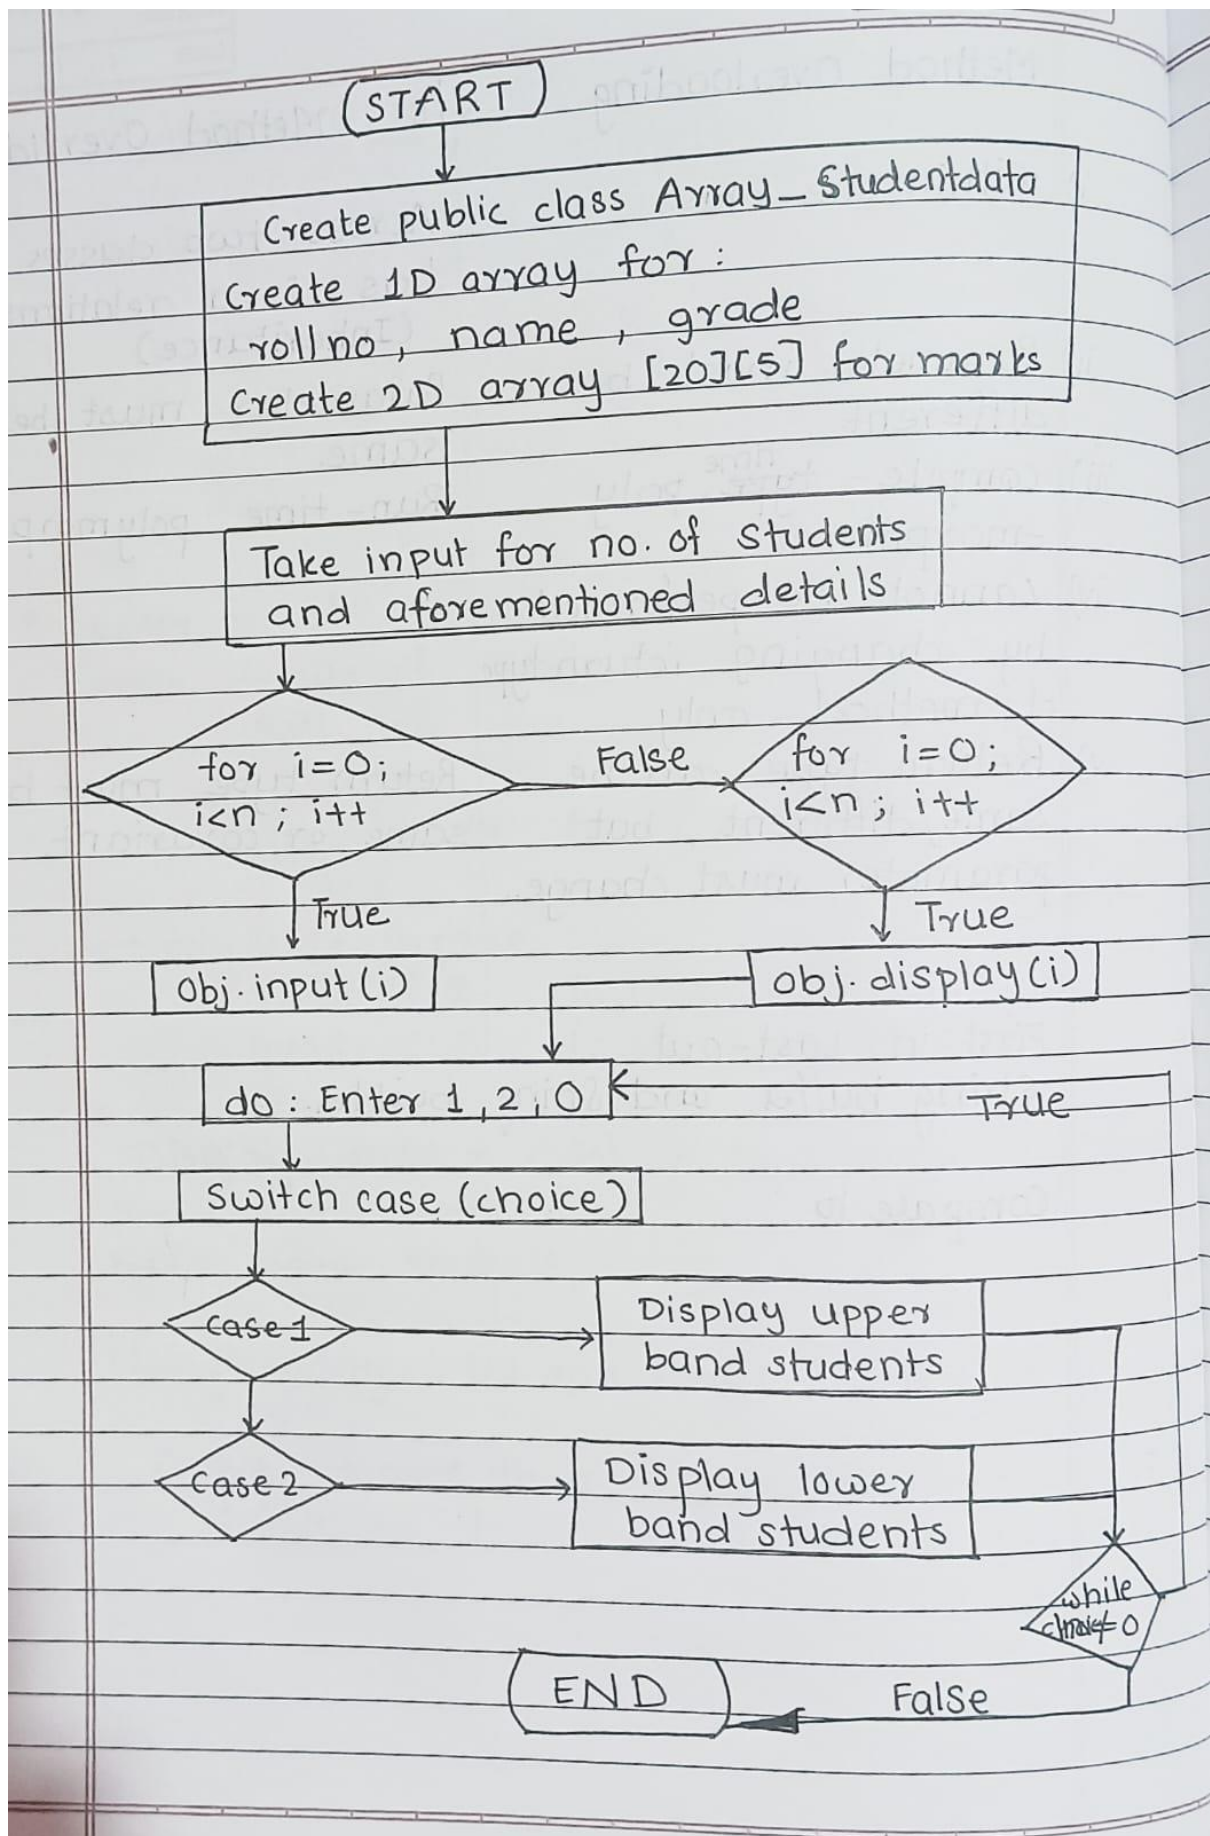 START
Create public class Array_Studentdata
Create 1D array for :
rollno, name , grade
Create 2D array [20][5] for marks
Take input for no. of students
and aforementioned details
for i=0;
i<n ; i++
False
for i=0;
i<n ; i++
True
True
obj.input(i)
obj.display(i)
do : Enter 1, 2, 0
True
Switch case (choice)
case 1
Display upper
band students
case 2
Display lower
band students
while
≠ 0
False
END